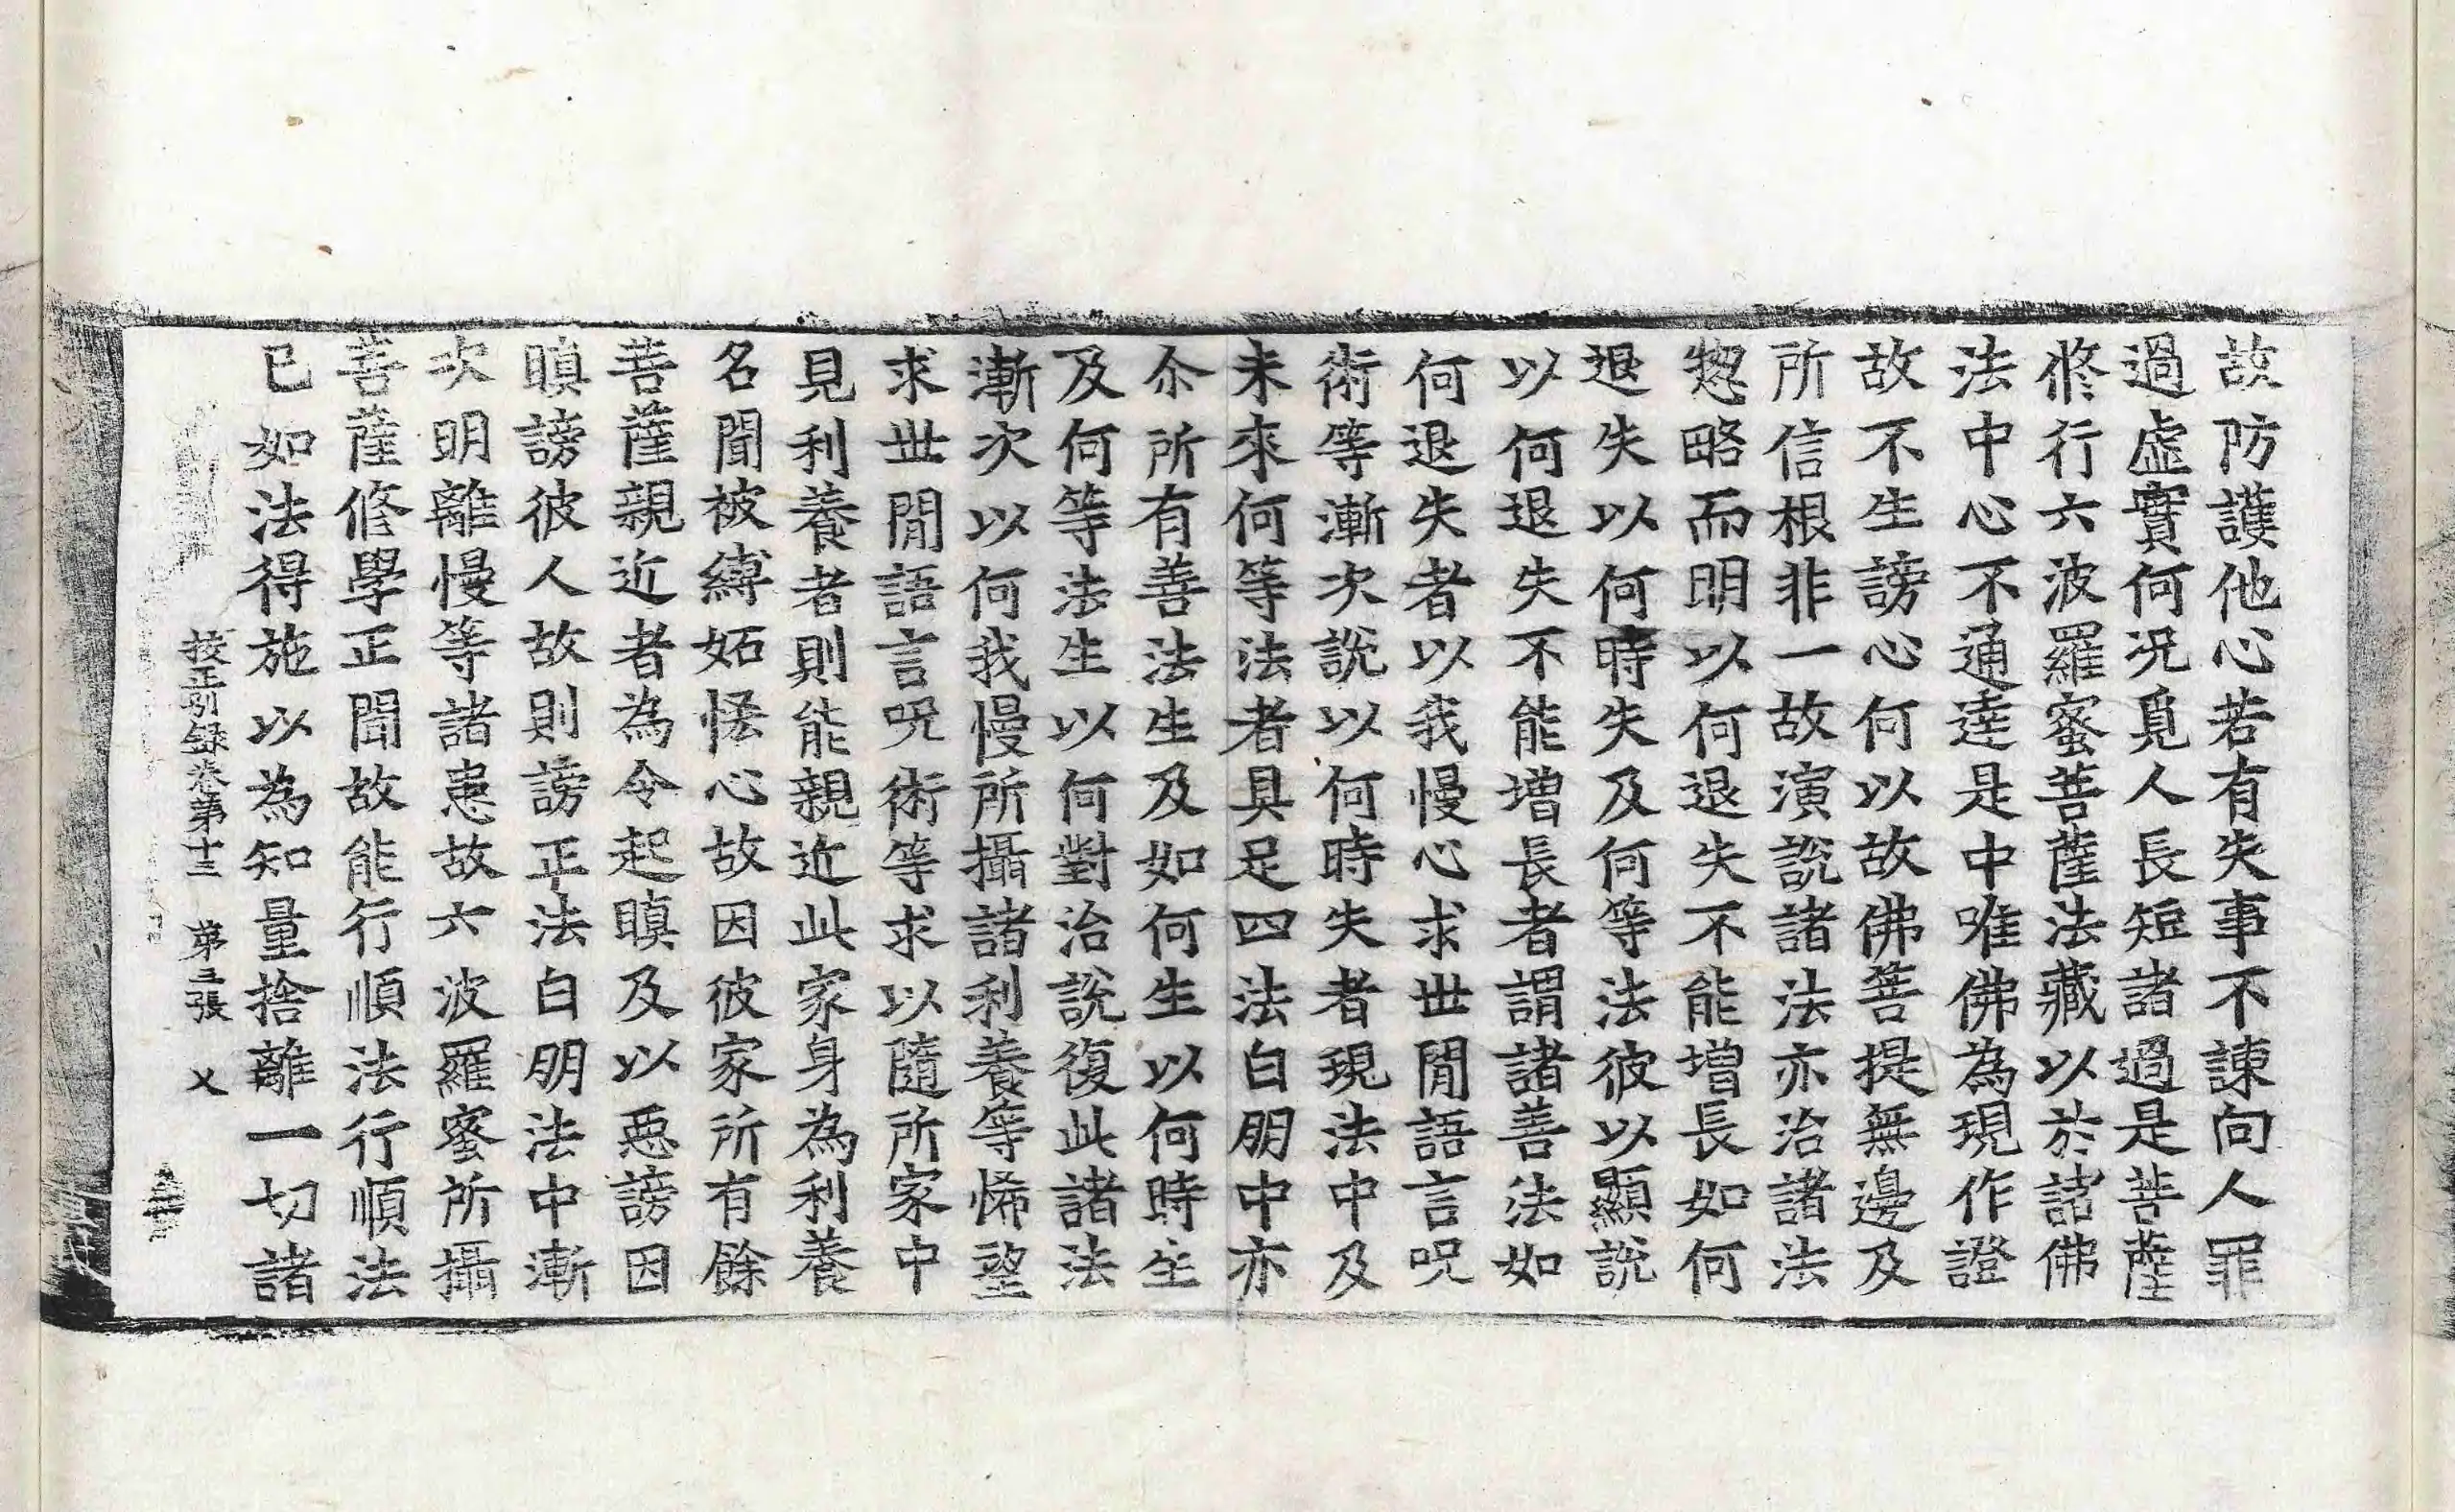 故防護他心若有失事不諫向人罪
過虛實何況覓人長短諸過是菩薩
修行六波羅蜜菩薩法藏以於諸佛
法中心不通達是中唯佛為現作證
故不生謗心何以故佛菩提無邊及
所信根非一故演說諸法亦治諸法
惣略而明以何退失不能增長如何
退失以何時失及何等法彼以顯說
以何退失不能增長者謂諸善法如
何退失者以我慢心求世間語言呪
術等漸次說以何時失者現法中及
未來何等法者具足四法白朋中亦
尒所有善法生及如何生以何時生
及何等法生以何對治說復此諸法
漸次以何我慢所攝諸利養等悕望
求世間語言呪術等求以隨所家中
見利養者則能親近此家身為利養
名聞被縛妬悋心故因彼家所有餘
菩薩親近者為令起瞋及以惡謗因
瞋謗彼人故則謗正法白朋法中漸
次明離慢等諸患故六波羅蜜所攝
菩薩修學正聞故能行順法行順法
已如法得施以為知量捨離一切諸
校正別錄卷第十三 第三張 乂